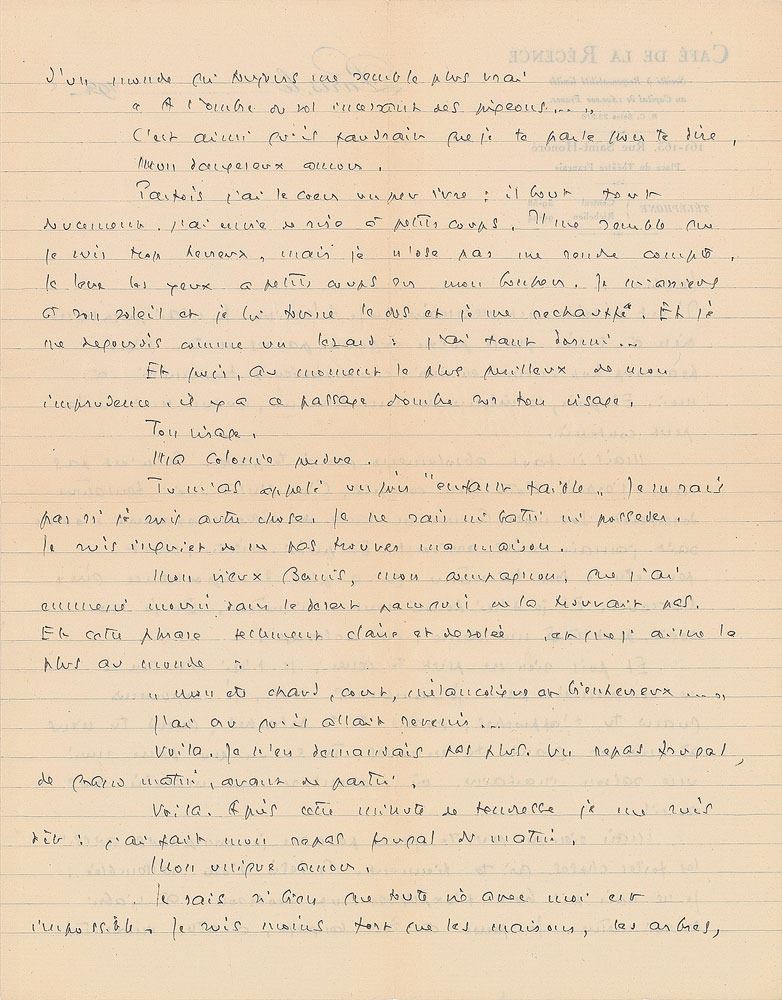 D'un monde qui toujours me semble plus vrai
" A l'ombre du sol incessant des pigeons.... "
C'est ainsi qu'il faudrait que je te parle pour te dire,
Mon dangereux amour.
Parfois j'ai le coeur un peu ivre : il bout tout
doucement. j'ai envie de rire à petits coups. Il me semble que
je suis trop heureux, mais je n'ose pas me rendre compte.
Je lève les yeux à petits coups sur mon bonheur. Je m'assieds
à son soleil et je lui tourne le dos et je me rechauffe. Et je
me degourdis comme un lezard : j'ai tant dormi...
Et puis, au moment le plus perilleux de mon
imprudence, il y a ce passage d'ombre sur ton visage.
Ton visage.
Ma Colonie perdue.
Tu m'as appelé un jour "enfant faible". Je ne sais
pas si je suis autre chose. Je ne sais ni batir ni posseder.
Je suis inquiet de ne pas trouver ma maison.
Mon vieux Barris, mon compagnon, que j'ai
emmené mourir dans le desert parcequ'il ne la trouvait pas.
Et cette phrase tellement claire et desolée, et que j'aime le
plus au monde :
" mon été chaud, court, mélancolique et bienheureux .... "
J'ai cru qu'il allait revenir...
Voilà. Je n'en demandais pas plus. Un repas frugal,
de grand matin, avant de partir.
Voilà. Après cette minute de tendresse je me suis
dit : j'ai fait mon repas frugal du matin.
Mon unique amour.
Je sais si bien que toute vie avec moi est
impossible. Je suis moins fort que les maisons, les arbres,
CAFÉ DE LA RÉGENCE
Société à Responsabilité Limitée
161-163, Rue Saint-Honoré
Place du Théâtre Français
TÉLÉPHONE